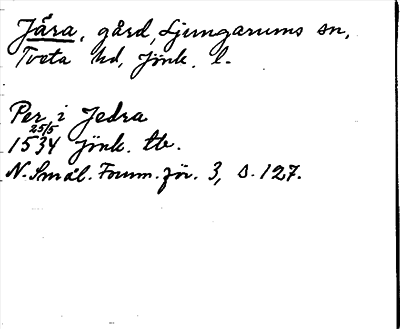 Jära, gård, Ljungarums sn,
Tveta hd, Jönk. l.
Per i Jedra
25/5
1534 Jönk. tb.
N. Smål. Fornm. för. 3, s. 127.